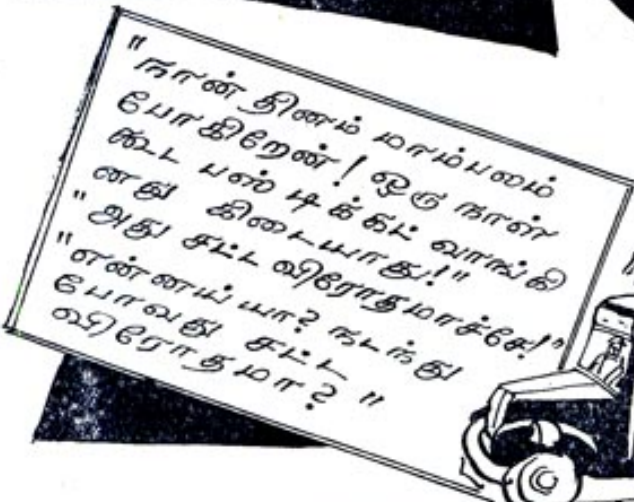 "நான் தினம் மாம்பலம்
போகிறேன்! ஒரு நாள்
கூட பஸ் டிக்கட் வாங்கி
னது கிடையாது!"
"அது சட்ட விரோதமாச்சே!"
"என்னய்யா? நடந்து
போவது சட்ட
விரோதமா?"